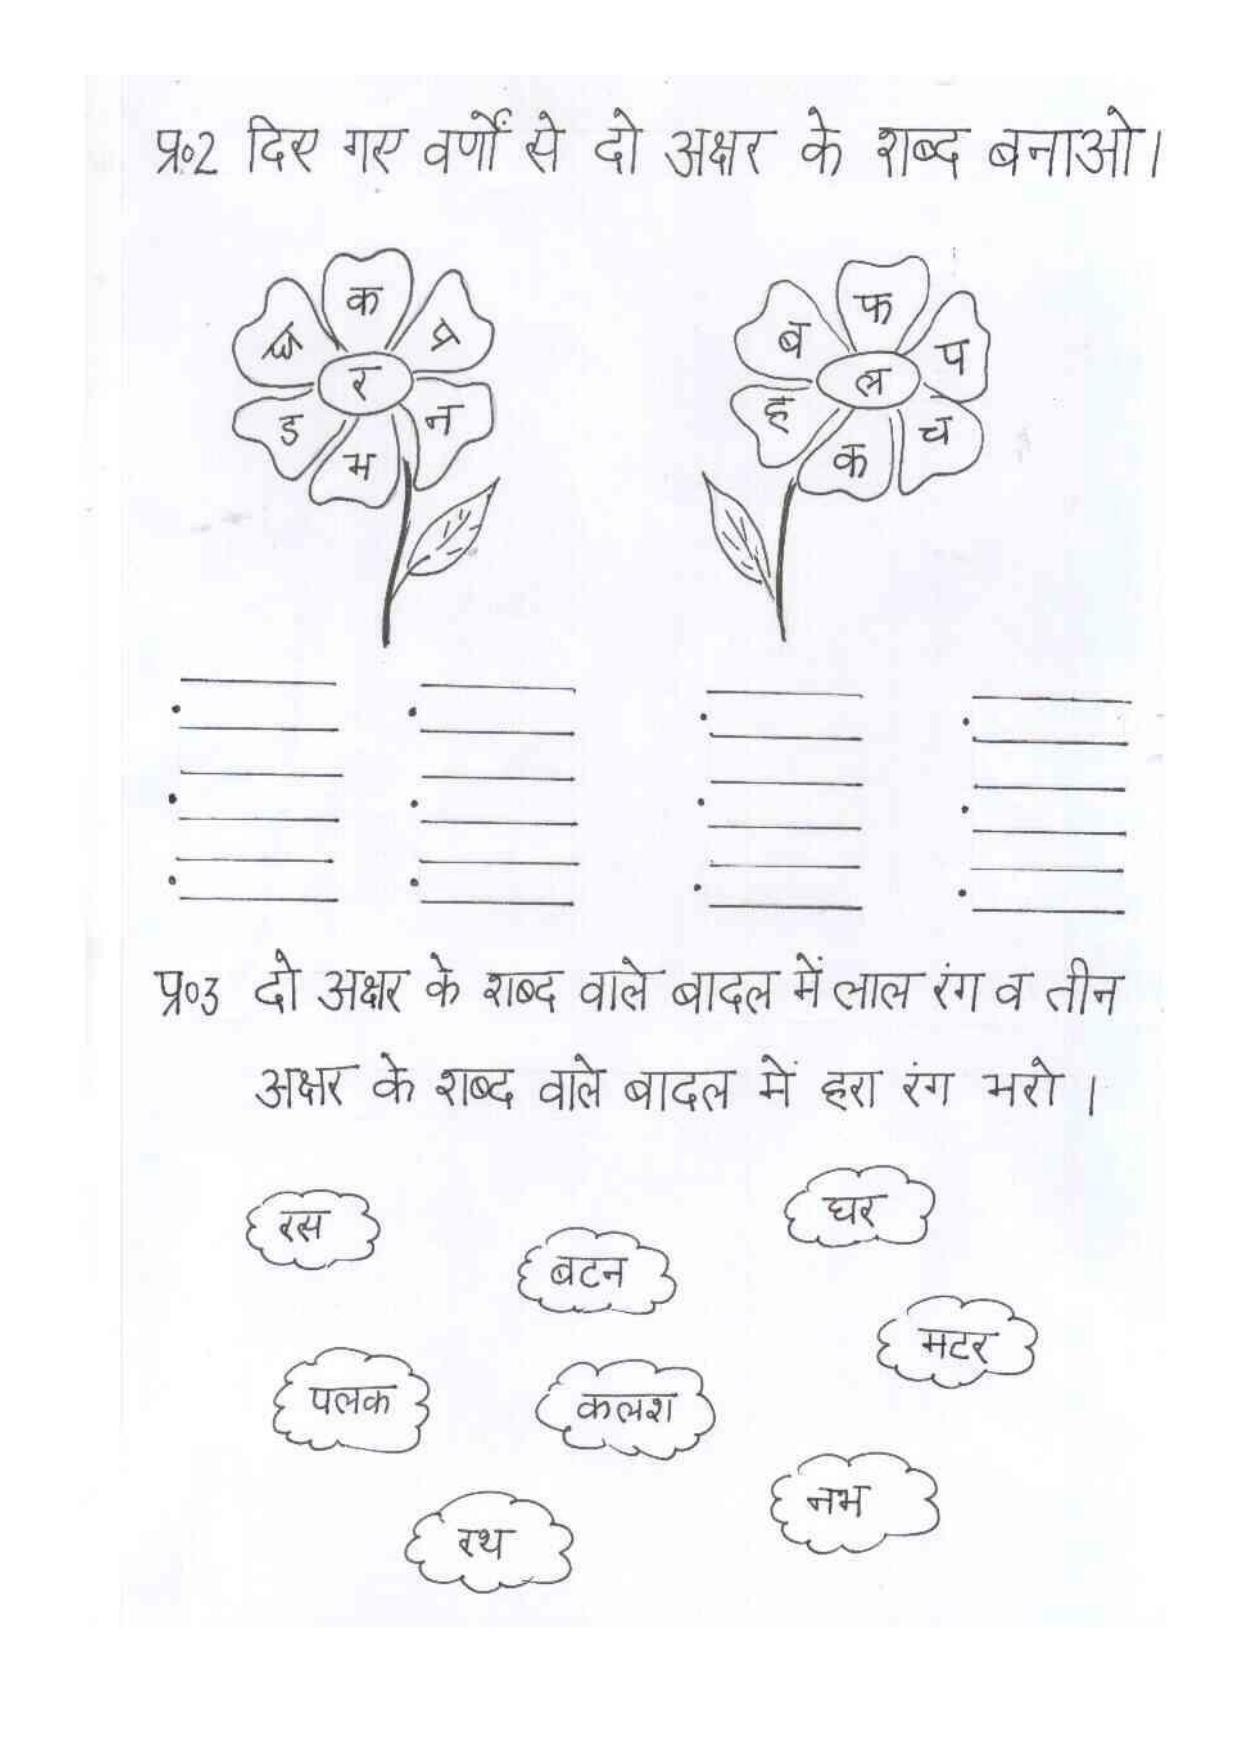 प्र०2 दिए गए वर्णों से दो अक्षर के शब्द बनाओ।
क
र
न
भ
ड
फ
ब
प
ल
ह
च
क
प्र०3 दो अक्षर के शब्द वाले बादल में लाल रंग व तीन
अक्षर के शब्द वाले बादल में हरा रंग भरो।
रस
बटन
घर
मटर
पलक
कलश
नभ
रथ